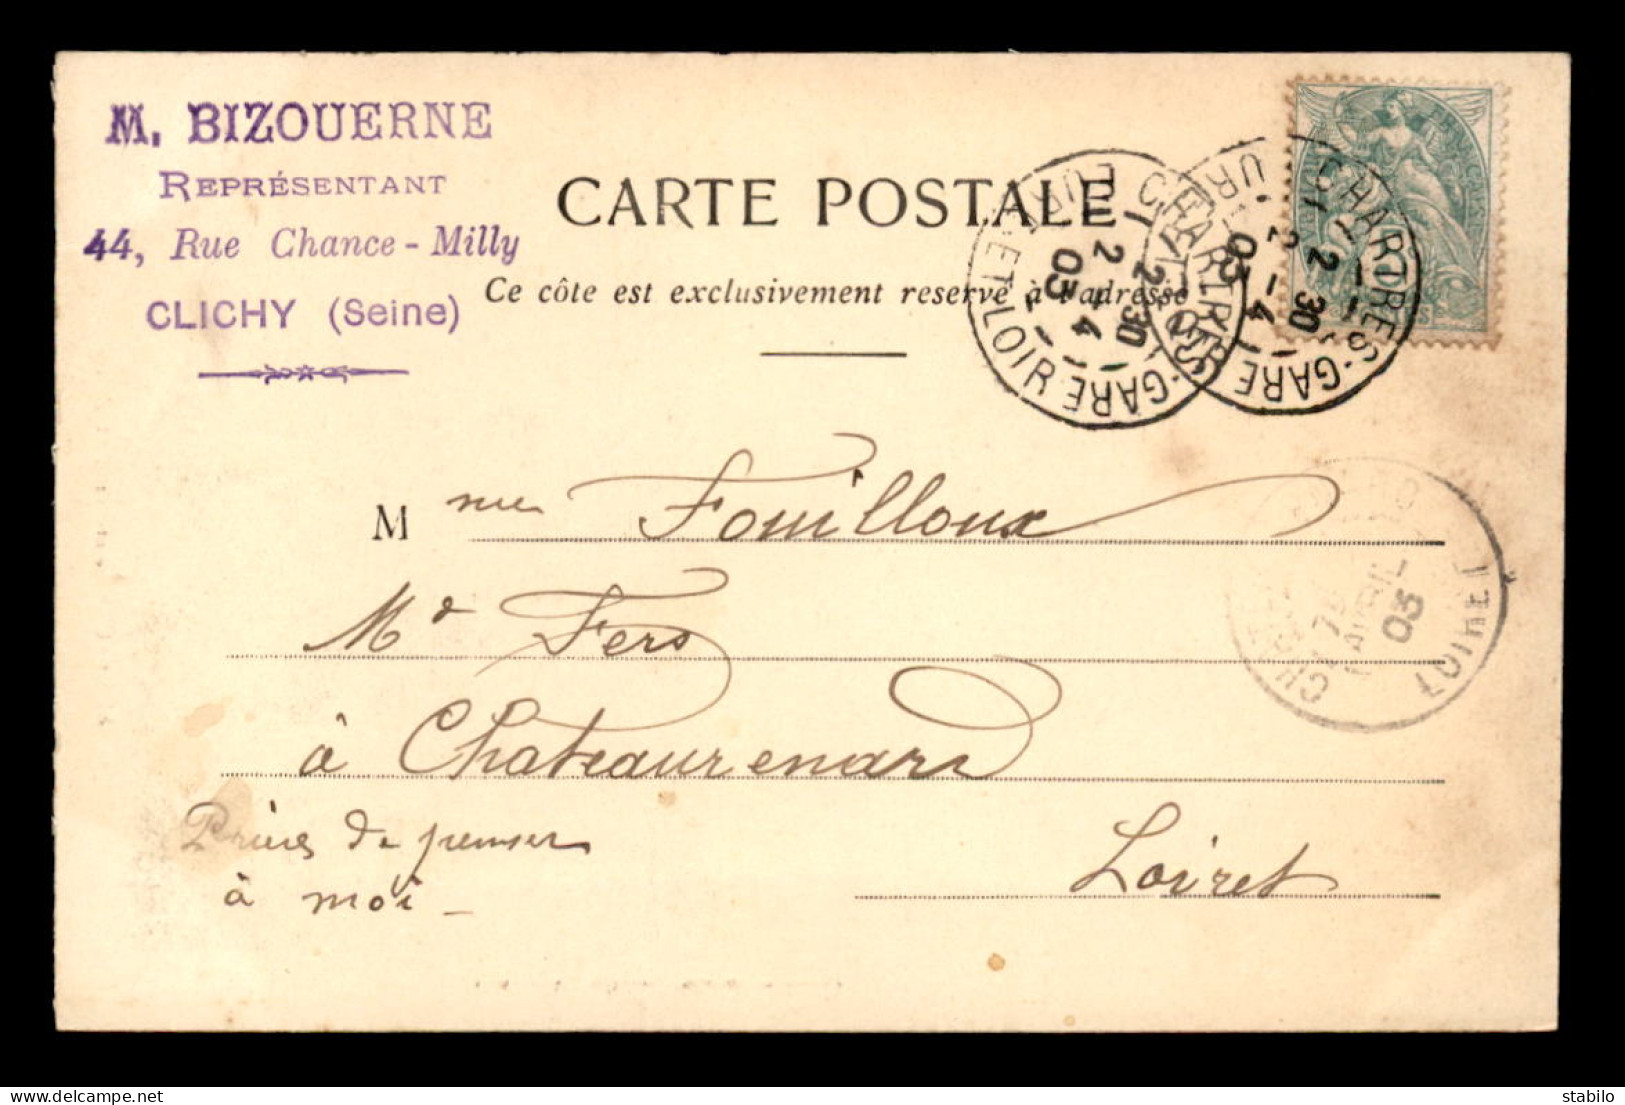 M. BIZOUERNE
REPRÉSENTANT
44, Rue Chance-Milly
CLICHY (Seine)
CARTE POSTALE
Ce côte est exclusivement reservé à l'adresse
CHARTRES-GARE
EURE-ET-LOIR
2 30
2 -4
03
CHARTRES-GARE
2 30
2 -4
03
Mme Fouilloux
Md Fers
à Chateaurenard
Loiret
AVRIL
03
LOIRET
Prières de penser
à moi -
delcampe.net
stabilo